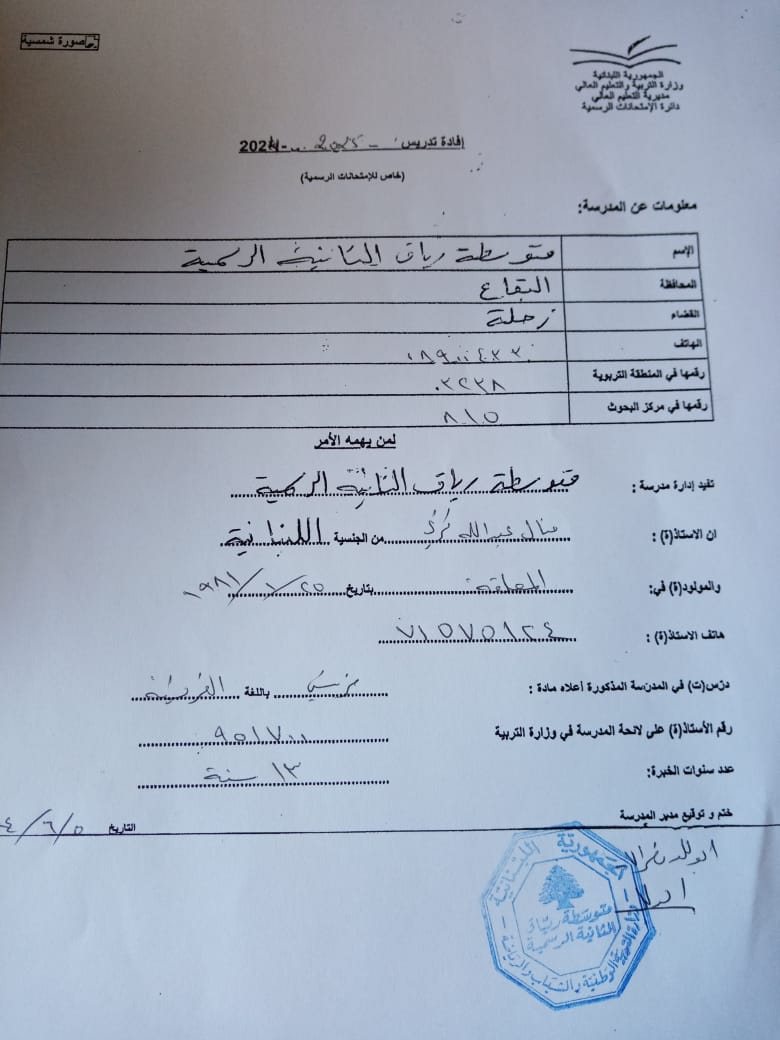 صورة شمسية
الجمهورية اللبنانية
وزارة التربية والتعليم العالي
مديرية التعليم العالي
دائرة الإمتحانات الرسمية
إفادة تدريس - 2025 - 2024
(خاص للإمتحانات الرسمية)
معلومات عن المدرسة:
الإسم متوسطة رياق الثانية الرسمية
المحافظة البقاع
القضاء زحلة
الهاتف
رقمها في المنطقة التربوية
رقمها في مركز البحوث ٨١٥
لمن يهمه الأمر
تفيد إدارة مدرسة : متوسطة رياق الثانية الرسمية
ان الاستاذ(ة) : منال عبدالله من الجنسية اللبنانية
والمولود(ة) في: المعلقة بتاريخ ٢٥/١/١٩٨١
هاتف الاستاذ(ة) : ٧١٥٧٥١٢٤
درّس(ت) في المدرسة المذكورة أعلاه مادة : باللغة الفرنسية
رقم الأستاذ(ة) على لائحة المدرسة في وزارة التربية
عدد سنوات الخبرة: ١٣ سنة
ختم و توقيع مدير المدرسة
التاريخ ٥/٦/
الجمهورية اللبنانية
متوسطة رياق
الثانية الرسمية
وزارة التربية الوطنية والشباب والرياضة